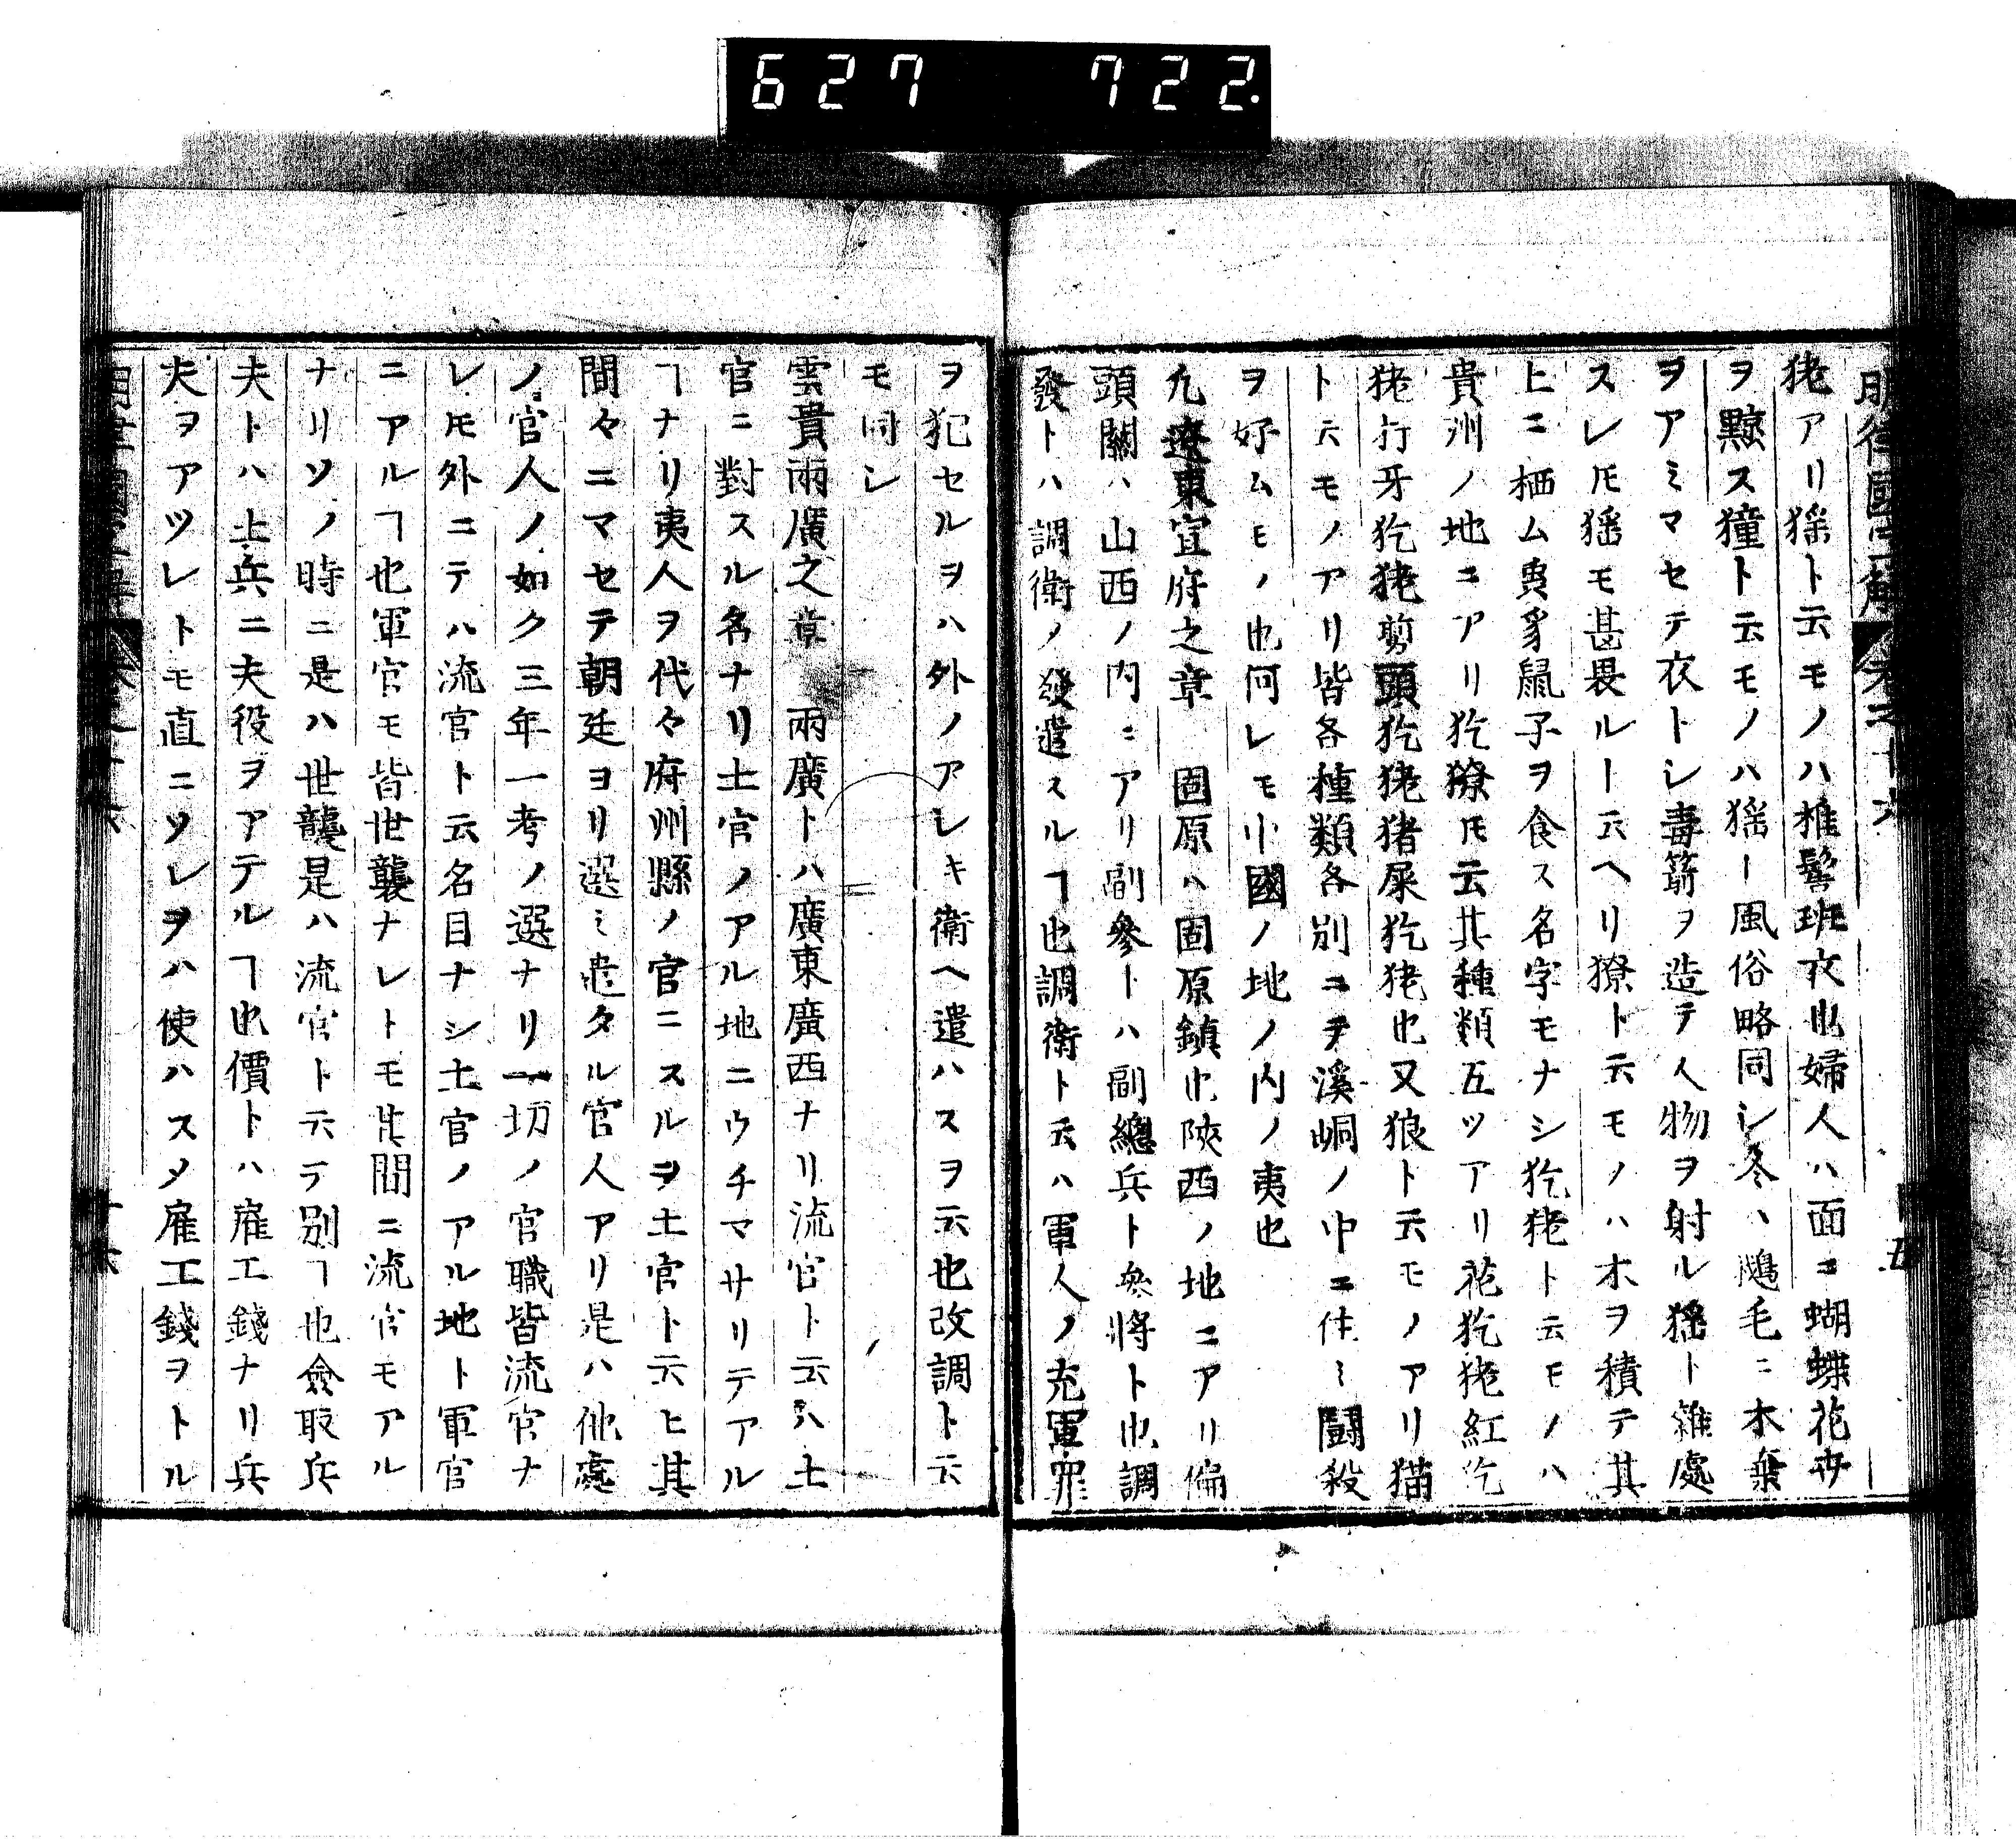 627 722.
明律國字解 卷之十六 五
狫アリ猺ト云モノハ椎髻班衣也婦人ハ面ニ蝴蝶花卉
ヲ黥ス獞ト云モノハ猺ト風俗略同シ冬ハ鵝毛ニ木葉
ヲアミマセテ衣トシ毒箭ヲ造テ人物ヲ射ル猺ト雜處
スレ𪜈猺モ甚畏ルト云ヘリ獠ト云モノハ木ヲ積テ其
上ニ栖ム魚豸鼠子ヲ食ス名字モナシ犵狫ト云モノハ
貴州ノ地ニアリ犵獠𪜈云其種類五ツアリ花犵狫紅犵
狫打牙犵狫剪頭犵狫猪屎犵狫也又狼ト云モノアリ猫
ト云モノアリ皆各種類各別ニヲ溪峒ノ中ニ住ミ鬪殺
ヲ好ムモノ也何レモ中國ノ地ノ内ノ夷也
凡遼東宣府之章 固原ハ固原鎮也陝西ノ地ニアリ偏
頭關ハ山西ノ内ニアリ副參トハ副總兵ト參將ト也調
發トハ調衛ノ發遣スルヿ也調衛ト云ハ軍人ノ充軍罪
ヲ犯セルヲハ外ノアレキ衛ヘ遣ハスヲ云也改調ト云
モ同シ
雲貴兩廣之章 兩廣トハ廣東廣西ナリ流官ト云ハ土
官ニ對スル名ナリ土官ノアル地ニウチマサリテアル
ヿナリ夷人ヲ代々府州縣ノ官ニスルヲ土官ト云ヒ其
間々ニマセテ朝廷ヨリ選ミ遣タル官人アリ是ハ他處
ノ官人ノ如ク三年一考ノ選ナリ一切ノ官職皆流官ナ
レ𪜈外ニテハ流官ト云名目ナシ土官ノアル地ト軍官
ニアルヿ也軍官モ皆世襲ナレトモ其間ニ流官モアル
ナリソノ時ニ是ハ世襲是ハ流官ト云テ別ヿ也僉取兵
夫トハ土兵ニ夫役ヲアテルヿ也價トハ雇工錢ナリ兵
夫ヲアツレトモ直ニソレヲハ使ハスメ雇工錢ヲトル